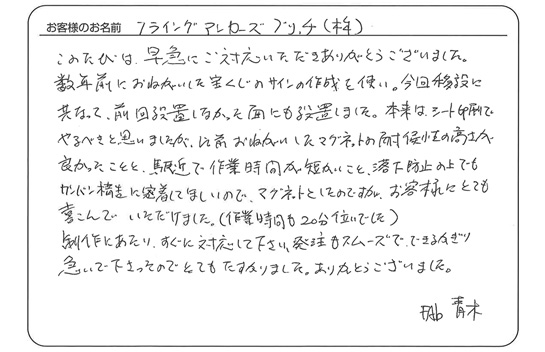 お客様のお名前 フライングアンカーズブリッヂ(株)
このたびは、早急にご対応いただきありがとうございました。
数年前におねがいした宝くじのサインの作成を使い。今回移設に
共なって、前回設置しなかった面にも設置しました。本来は、シート印刷で
やるべきと思いましたが、以前おねがいしたマグネットの耐侯性の高さが
良かったことと、駅近で作業時間が短かいこと、落下防止の上でも
構造に密着してほしいので、マグネットとしたのですが、お客様にとても
喜こんでいただけました。(作業時間も20分位いでした)
制作にあたり、すぐに対応して下さい、発注もスムーズで、できるかぎり
急いで下さったのでとてもたすかりました。ありがとうございました。
青木